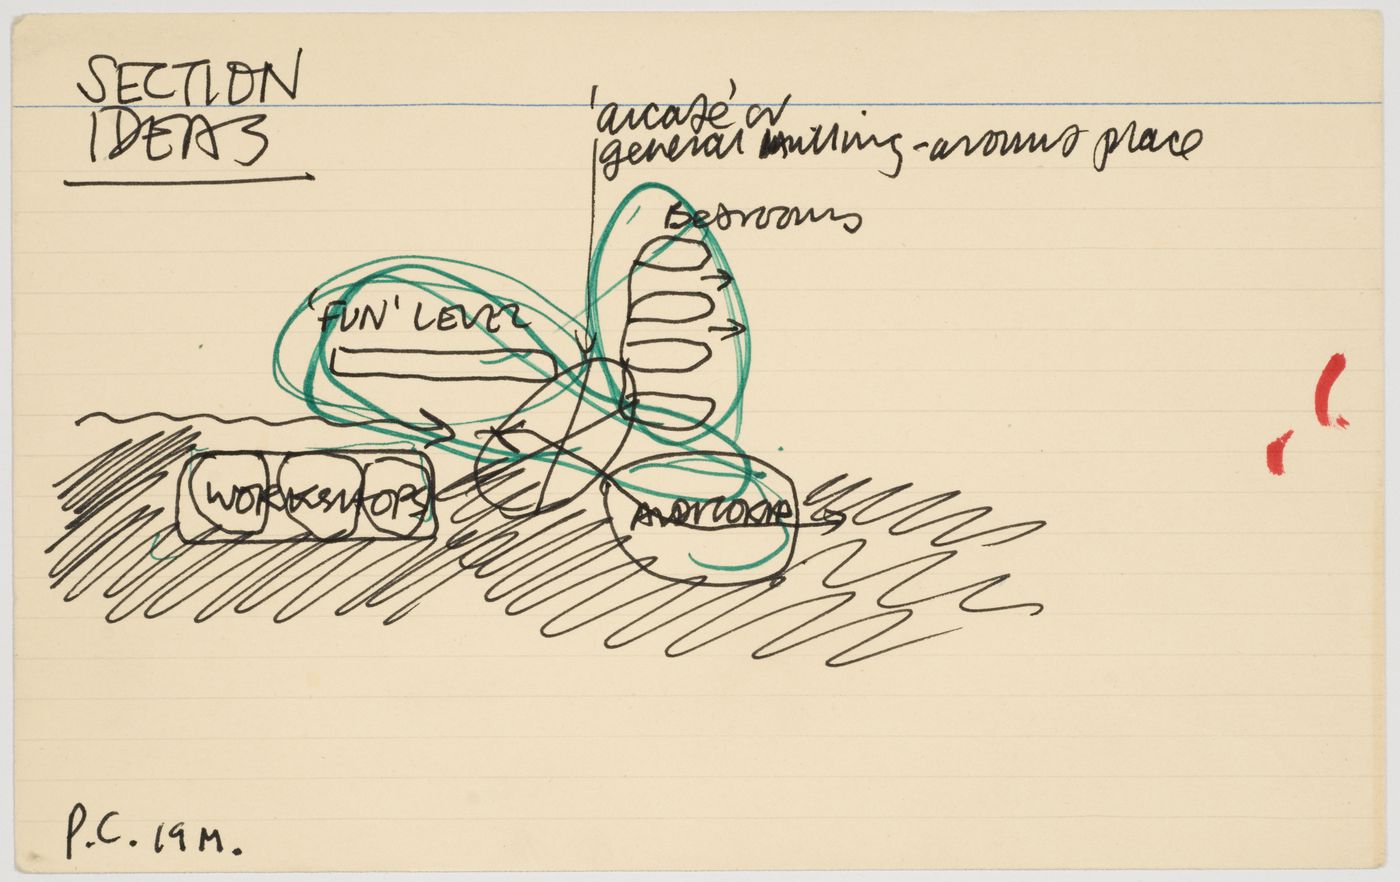 SECTION
IDEAS
'arcade' or
general milling-around place
Bedrooms
'FUN' LEVEL
WORKSHOPS
P.C. 19 M.